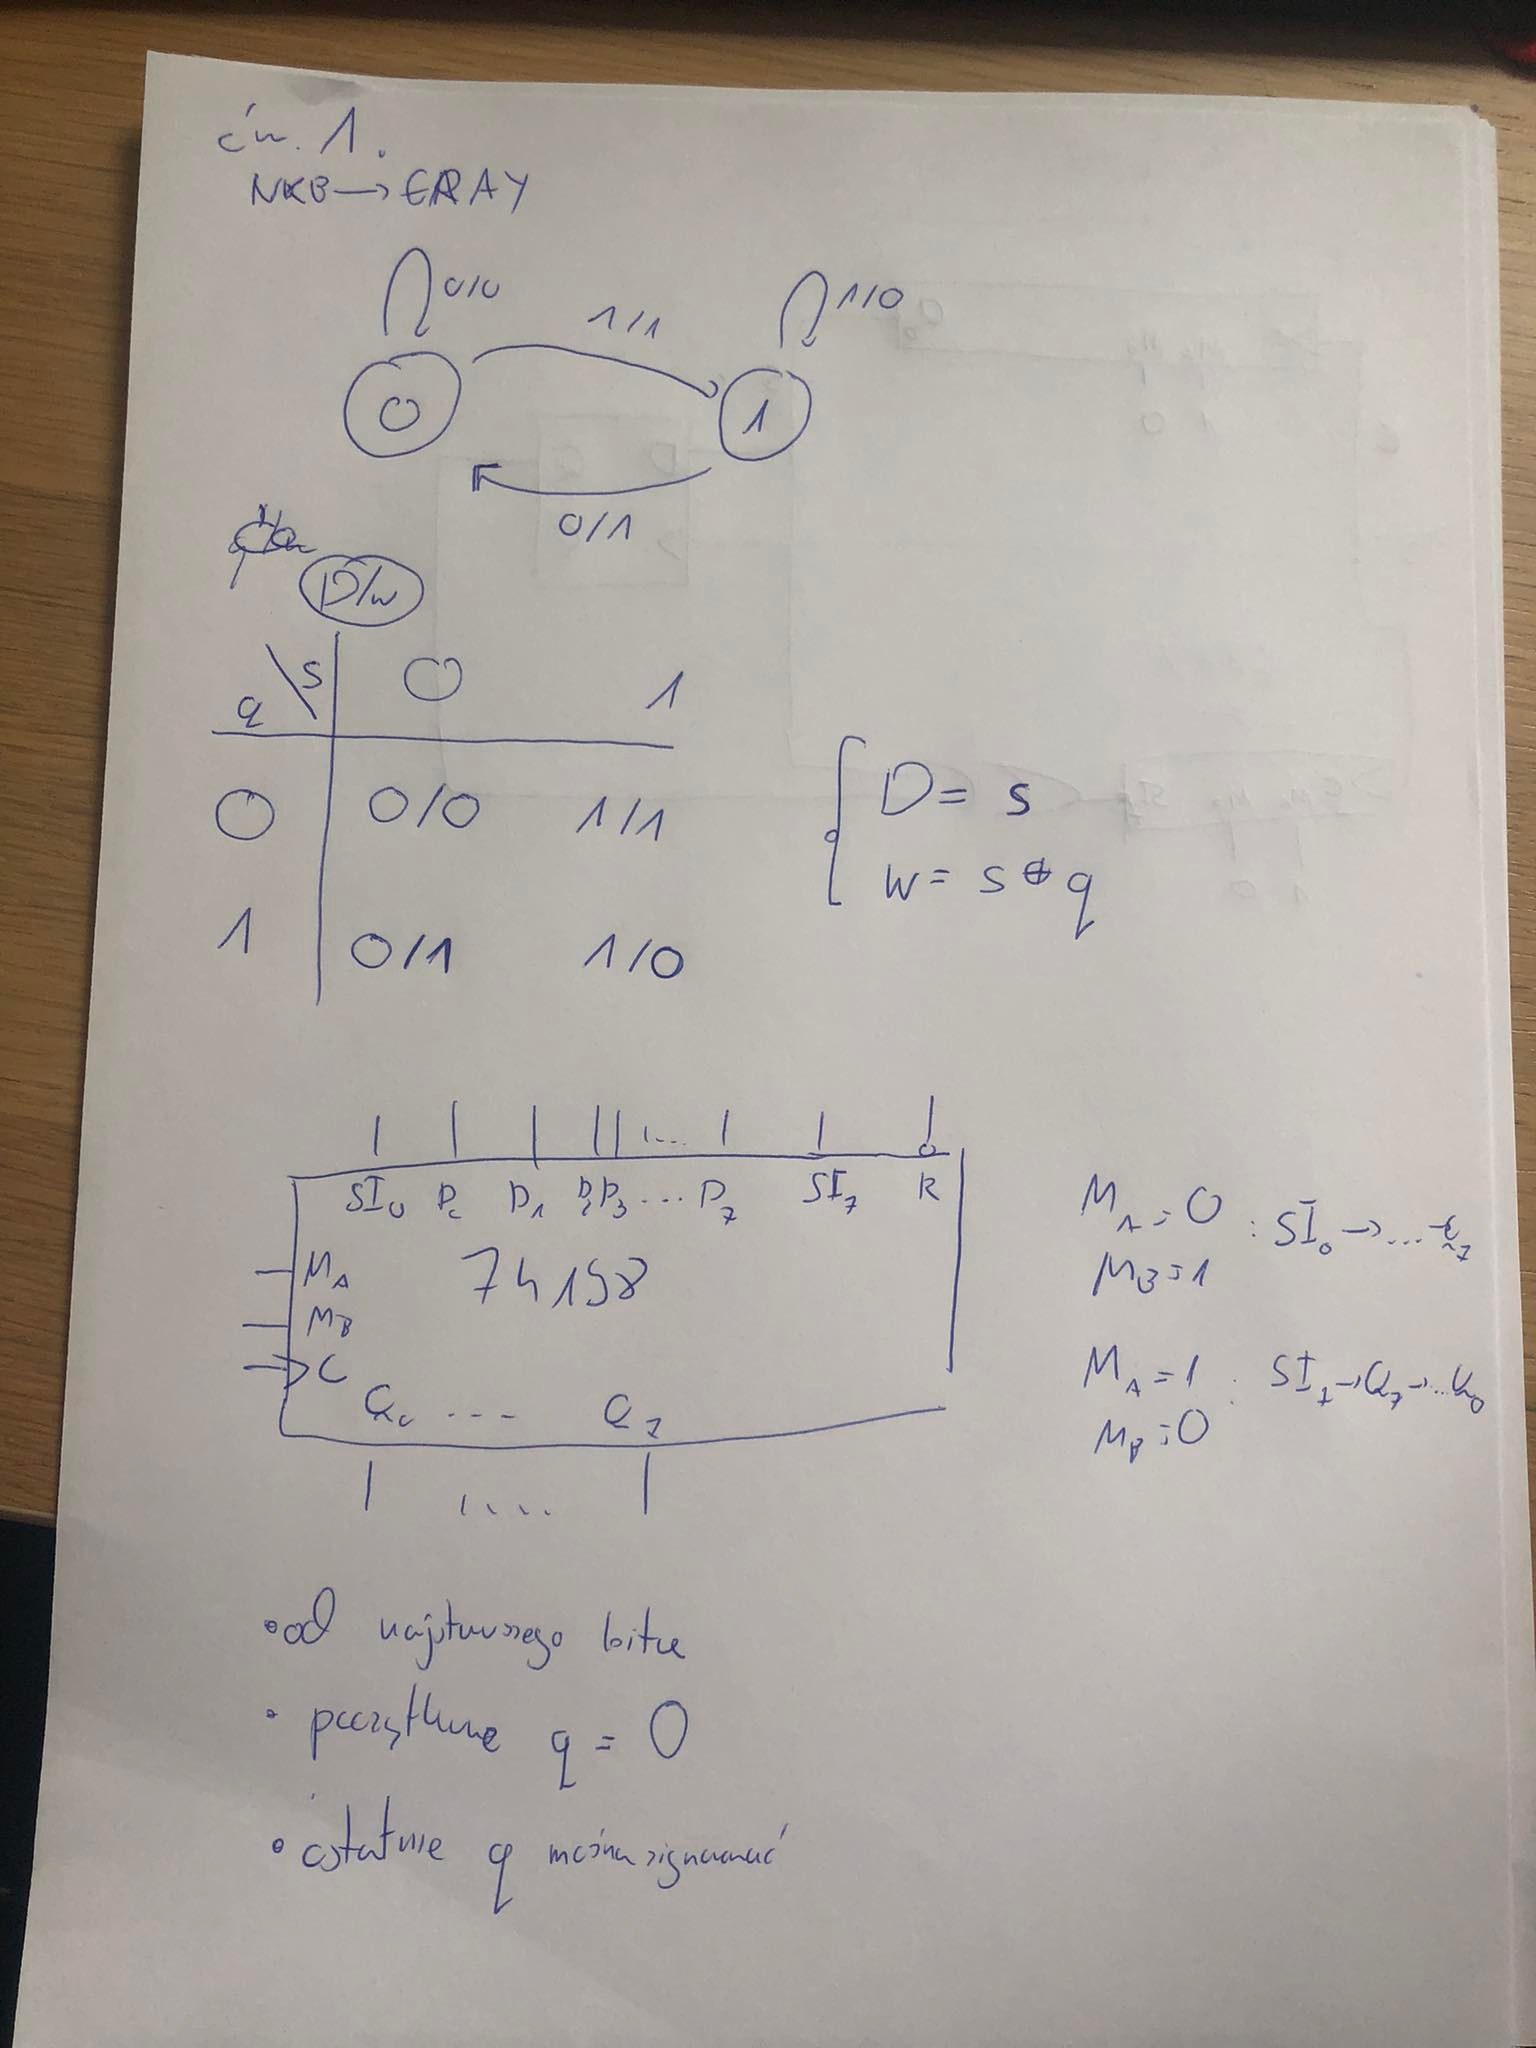 ćw. 1.
NKB → GRAY
0/0
1/1
1/0
0
1
0/1
D/w
q \ s 0 1
0 0/0 1/1
1 0/1 1/0
D = s
w = s ⊕ q
SI₀ D₀ D₁ D₂ D₃ ... D₇ SI₇ R
M_A 74198
M_B
C
Q₀ ... Q₇
....
M_A = 0 : SI₀ → ... Q₇
M_B = 1
M_A = 1 : SI₇ → Q₇ → ... Q₀
M_B = 0
• od najstarszego bitu
• początkowe q = 0
• ostatnie q można zignorować